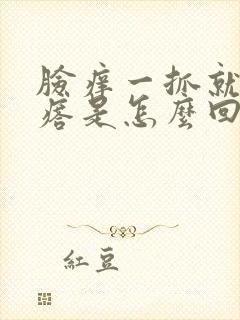 臉癢一抓就
痞是怎麼回
紅豆